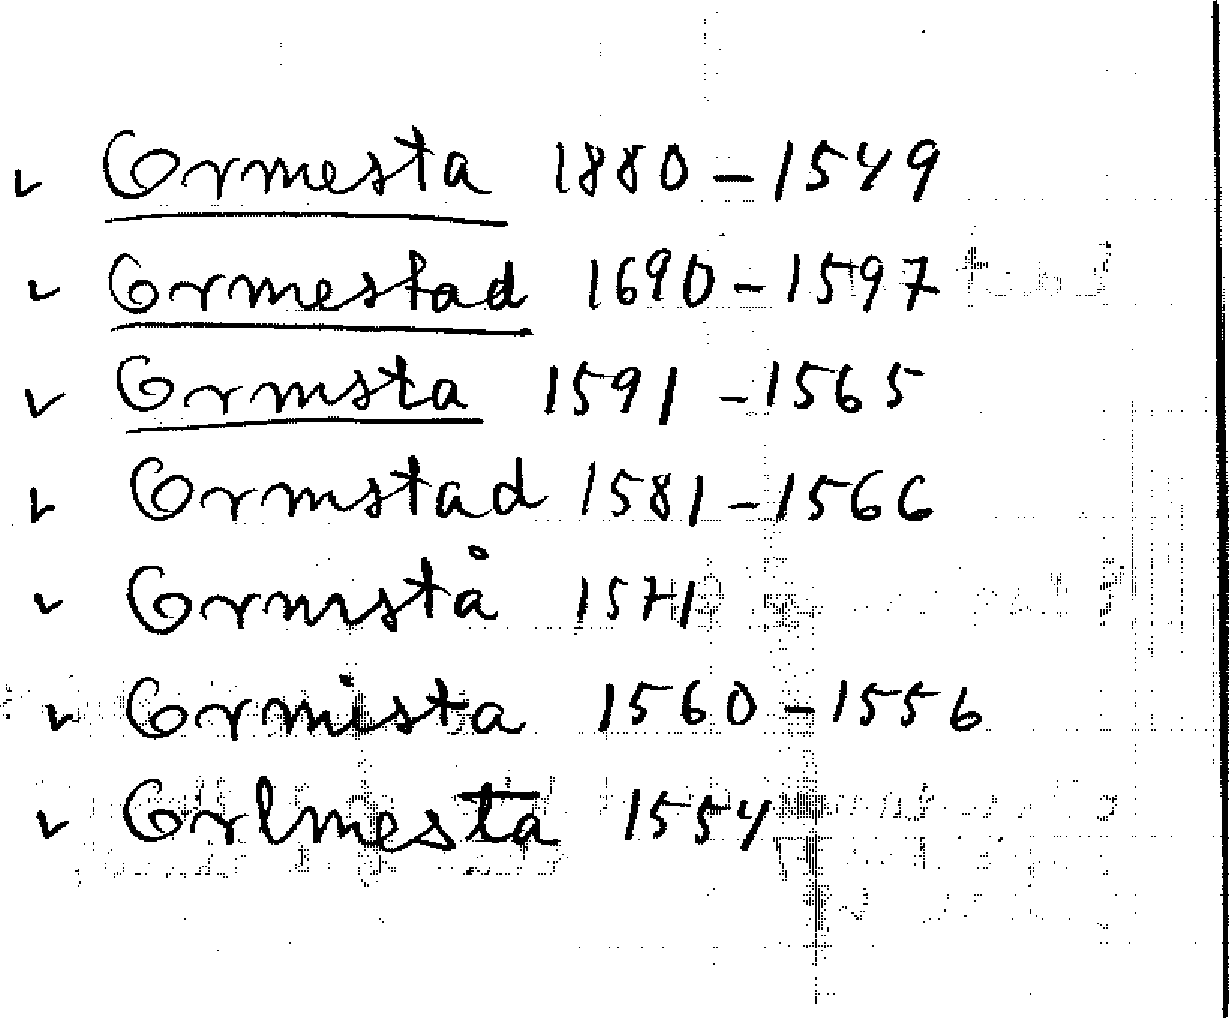 Ormesta 1880-1549
Ormestad 1690-1597
Ormsta 1591-1565
Ormstad 1581-1566
Ormstå 1571
Ormista 1560-1556
Orlmesta 1554